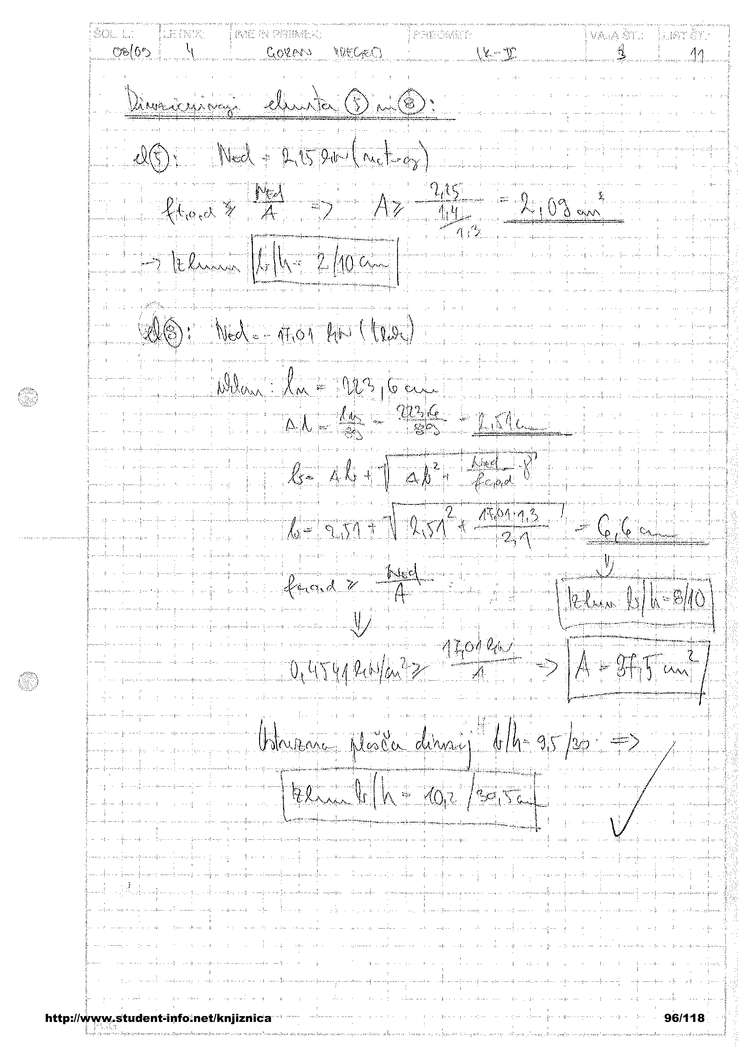 ŠOL. L.: LETNIK: IME IN PRIIMEK: PREDMET: VAJA ŠT.: LIST ŠT.:
08/09 4 GORAN LK-II 3 11
elementa ⑤ in ⑧:
el⑤: Ned = 2,25 kN (nateg)
ft,o,d ≥ Ned/A => A ≥ 2,25/(1,4/1,3) = 2,09 cm²
→ Izberem b/h = 2/10 cm
el⑧: Ned = -17,01 kN (tlak)
uklon: ln = 223,6 cm
Δb = ln/89 = 223,6/89 = 2,51 cm
b = Δb + √(Δb² + Ned/fc,o,d · 8)
b = 2,51 + √(2,51² + 17,01·1,3/2,1) = 6,6 cm
fc,o,d ≥ Ned/A
⇓
Izberem b/h = 8/10
⇓
0,4541 kN/cm² ≥ 17,01 kN/A => A = 37,5 cm²
Ustrezna plošča dimenzij b/h = 9,5/30 =>
Izberem b/h = 10,2/30,5 cm
http://www.student-info.net/knjiznica 96/118